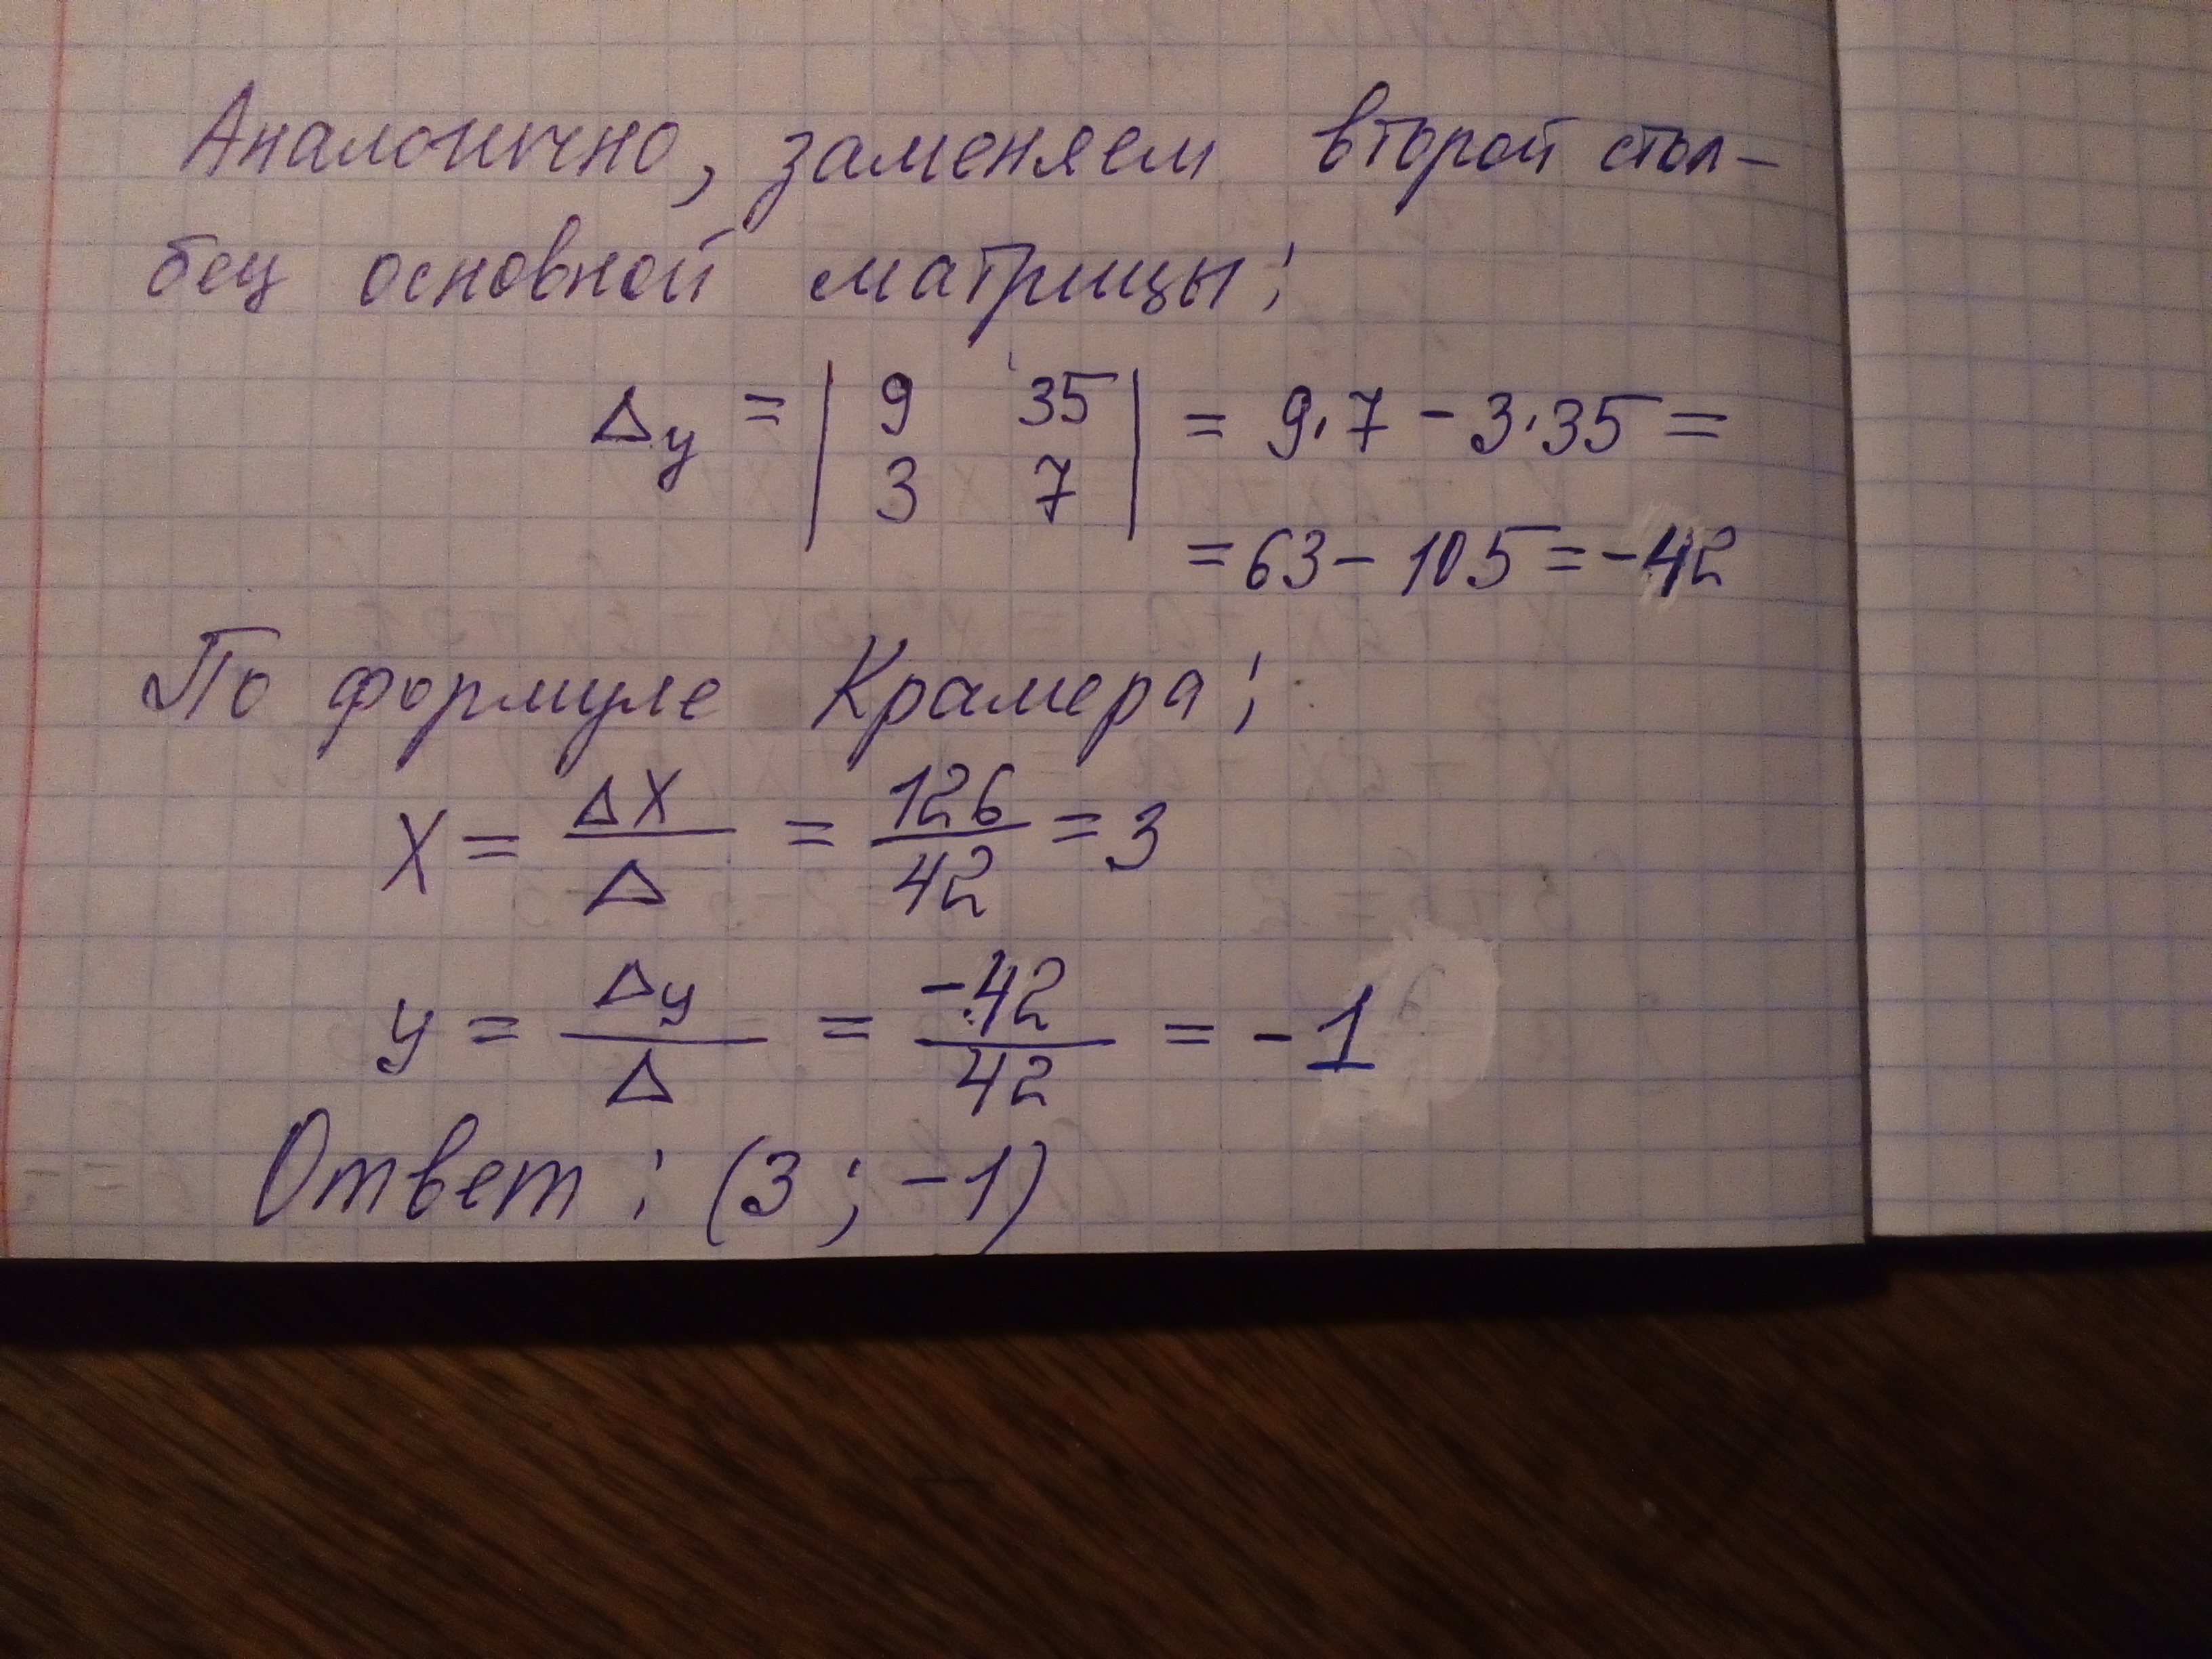 Аналогично, заменяем второй стол-
бец основной матрицы:
Δy = | 9 35 | = 9·7 - 3·35 =
| 3 7 |
= 63 - 105 = -42
По формуле Крамера:
X = ΔX / Δ = 126 / 42 = 3
y = Δy / Δ = -42 / 42 = -1
Ответ: (3; -1)